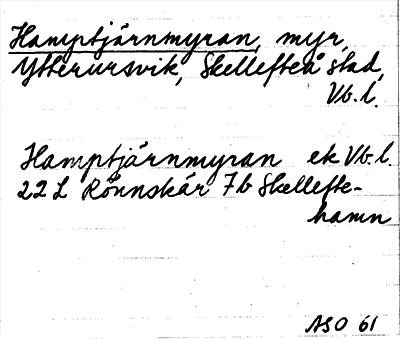 Hamptjärnmyran, myr,
Ytterursvik, Skellefteå stad,
Vb.l.
Hamptjärnmyran ek Vb.l.
22 L Rönnskär 7b Skellefte-
hamn
ASO 61